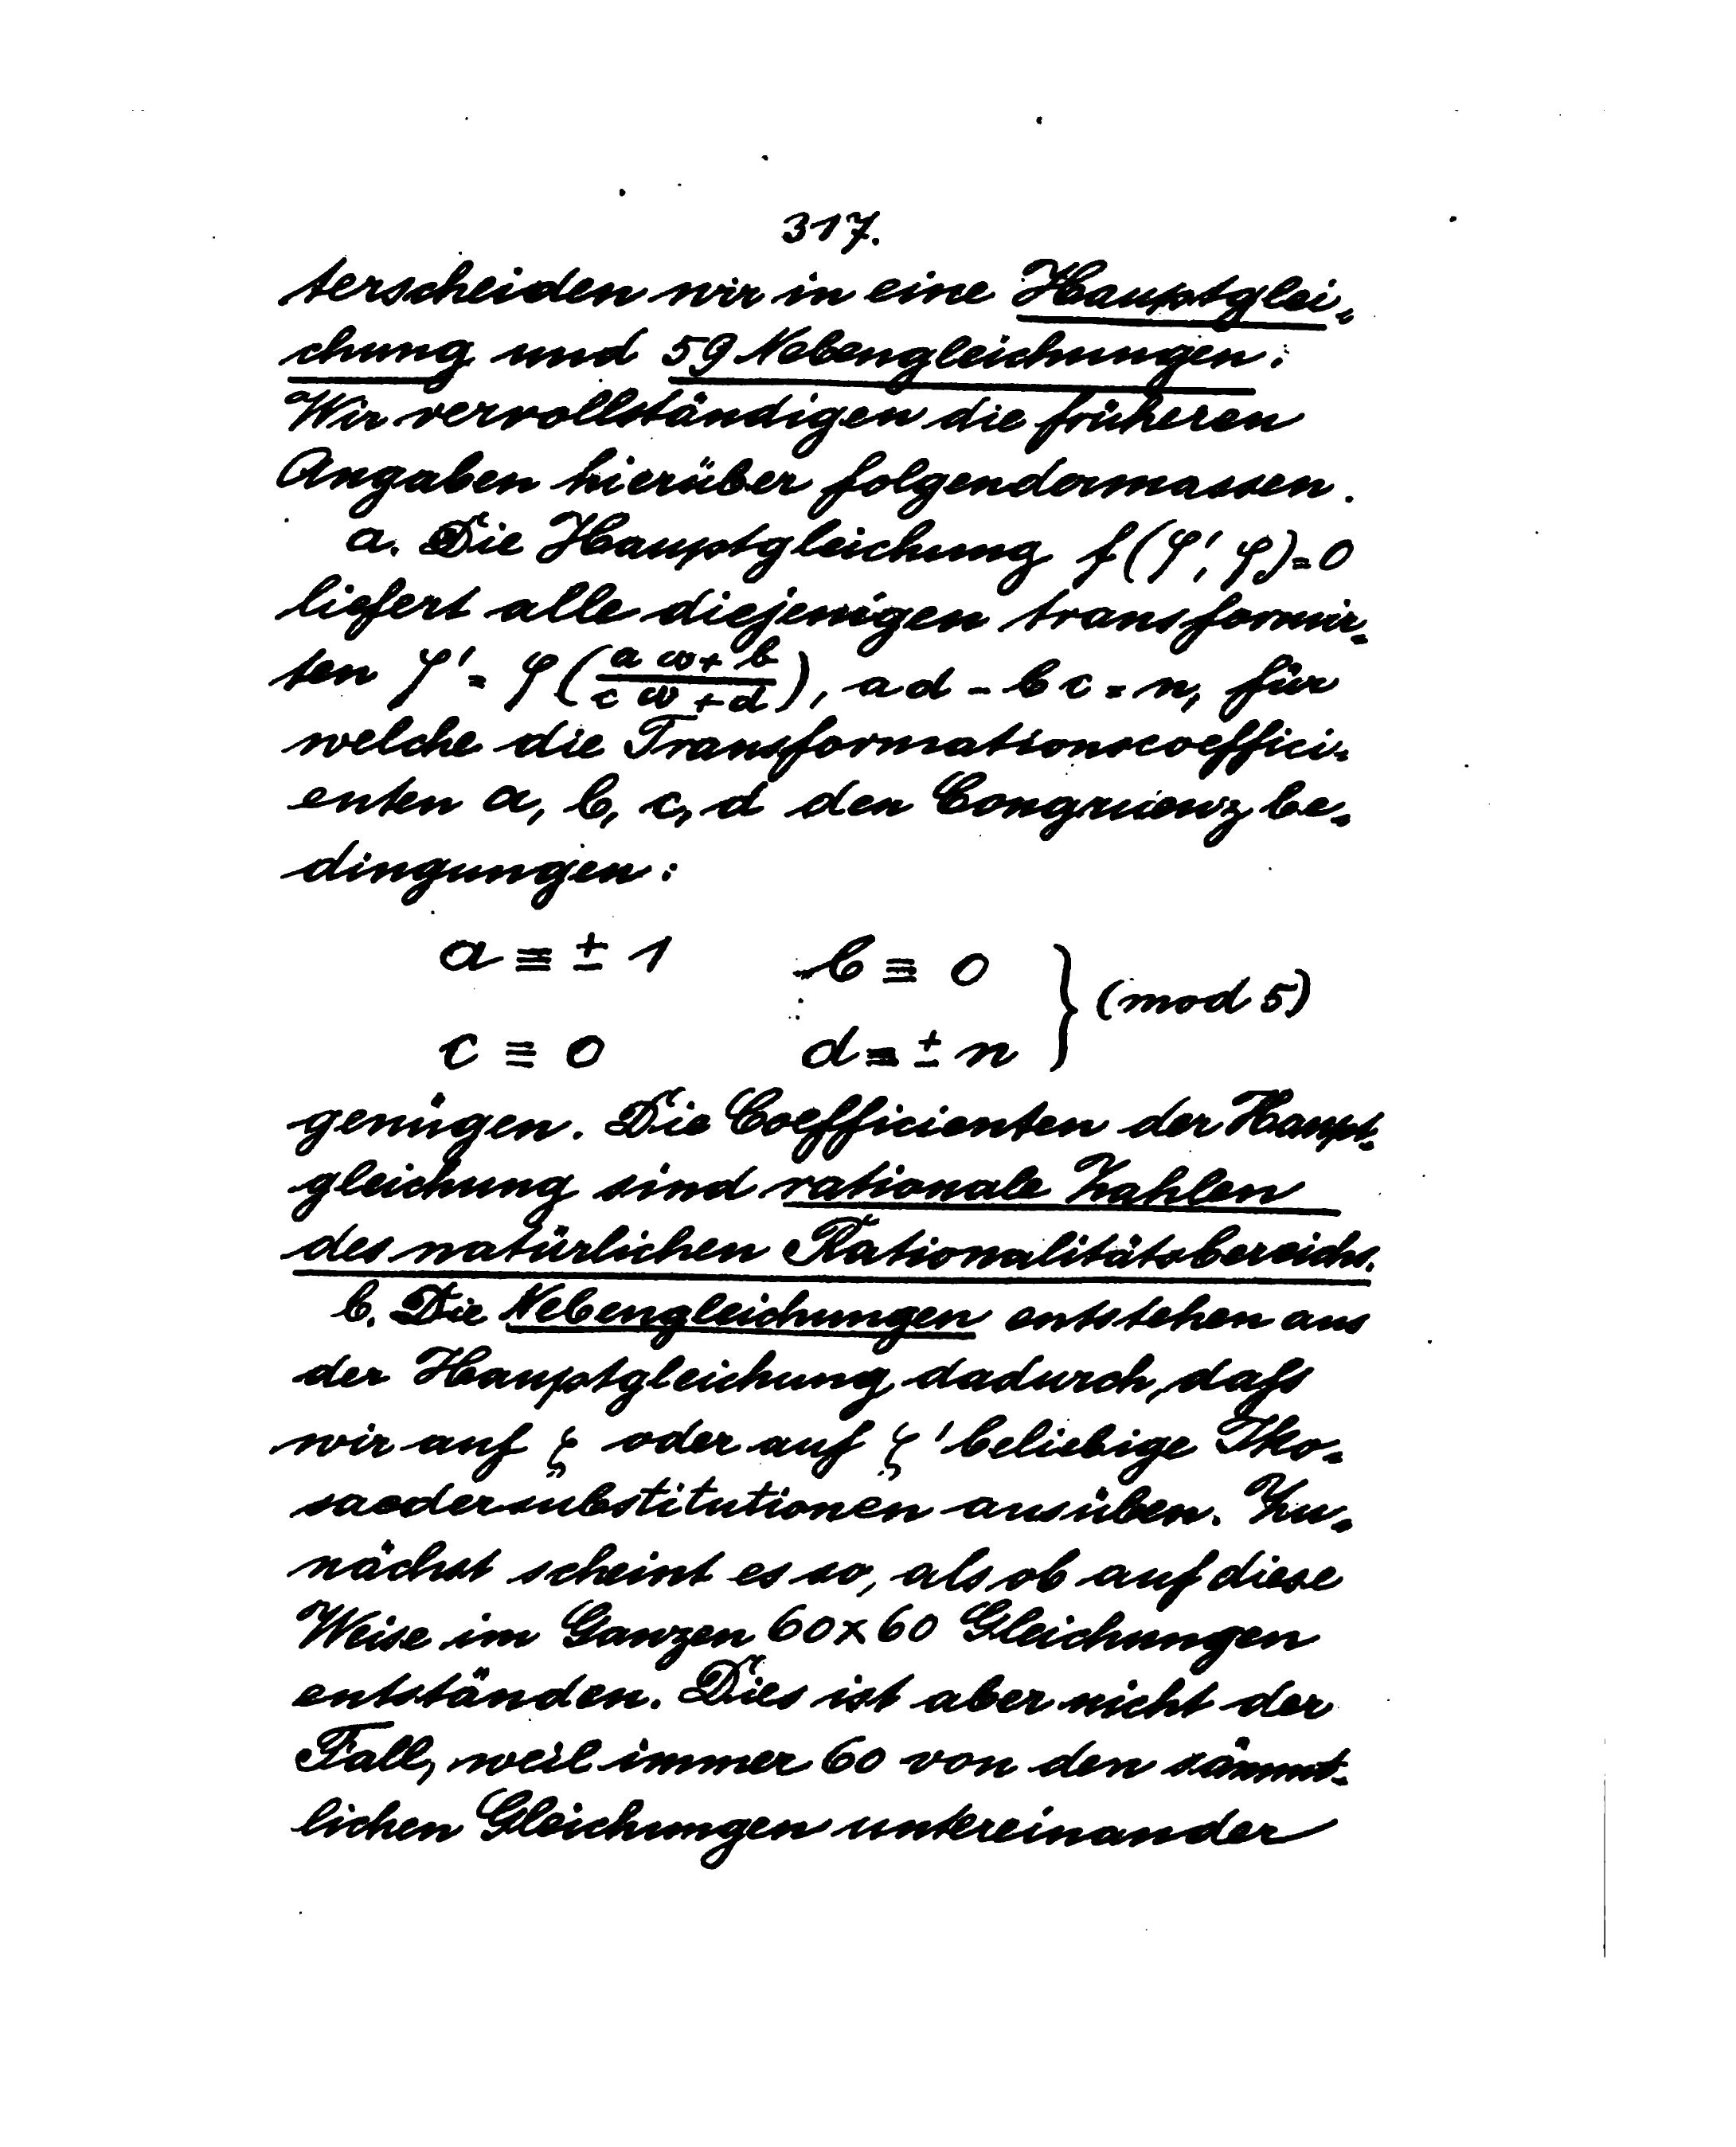 317.
terscheiden wir in eine Hauptglei-
chung und 59 Nebengleichungen.
Wir vervollständigen die früheren
Angaben hierüber folgendermassen.
a. Die Hauptgleichung f(φ', φ)=0
liefert alle diejenigen transformir-
ten φ' = φ((aω+b)/(cω+d)), ad - bc = n, für
welche die Transformationscoeffici-
enten a, b, c, d den Congruenzbe-
dingungen:
a ≡ ± 1 b ≡ 0
} (mod 5)
c ≡ 0 d ≡ ± n
genügen. Die Coefficienten der Haupt-
gleichung sind rationale Zahlen
des natürlichen Rationalitätsbereichs.
b. Die Nebengleichungen entstehen aus
der Hauptgleichung dadurch, daſs
wir auf ζ oder auf ζ' beliebige Iko-
saedersubstitutionen ausüben. Zu-
nächst scheint es so, als ob auf diese
Weise im Ganzen 60×60 Gleichungen
entständen. Dies ist aber nicht der
Fall, weil immer 60 von den sämmt-
lichen Gleichungen untereinander